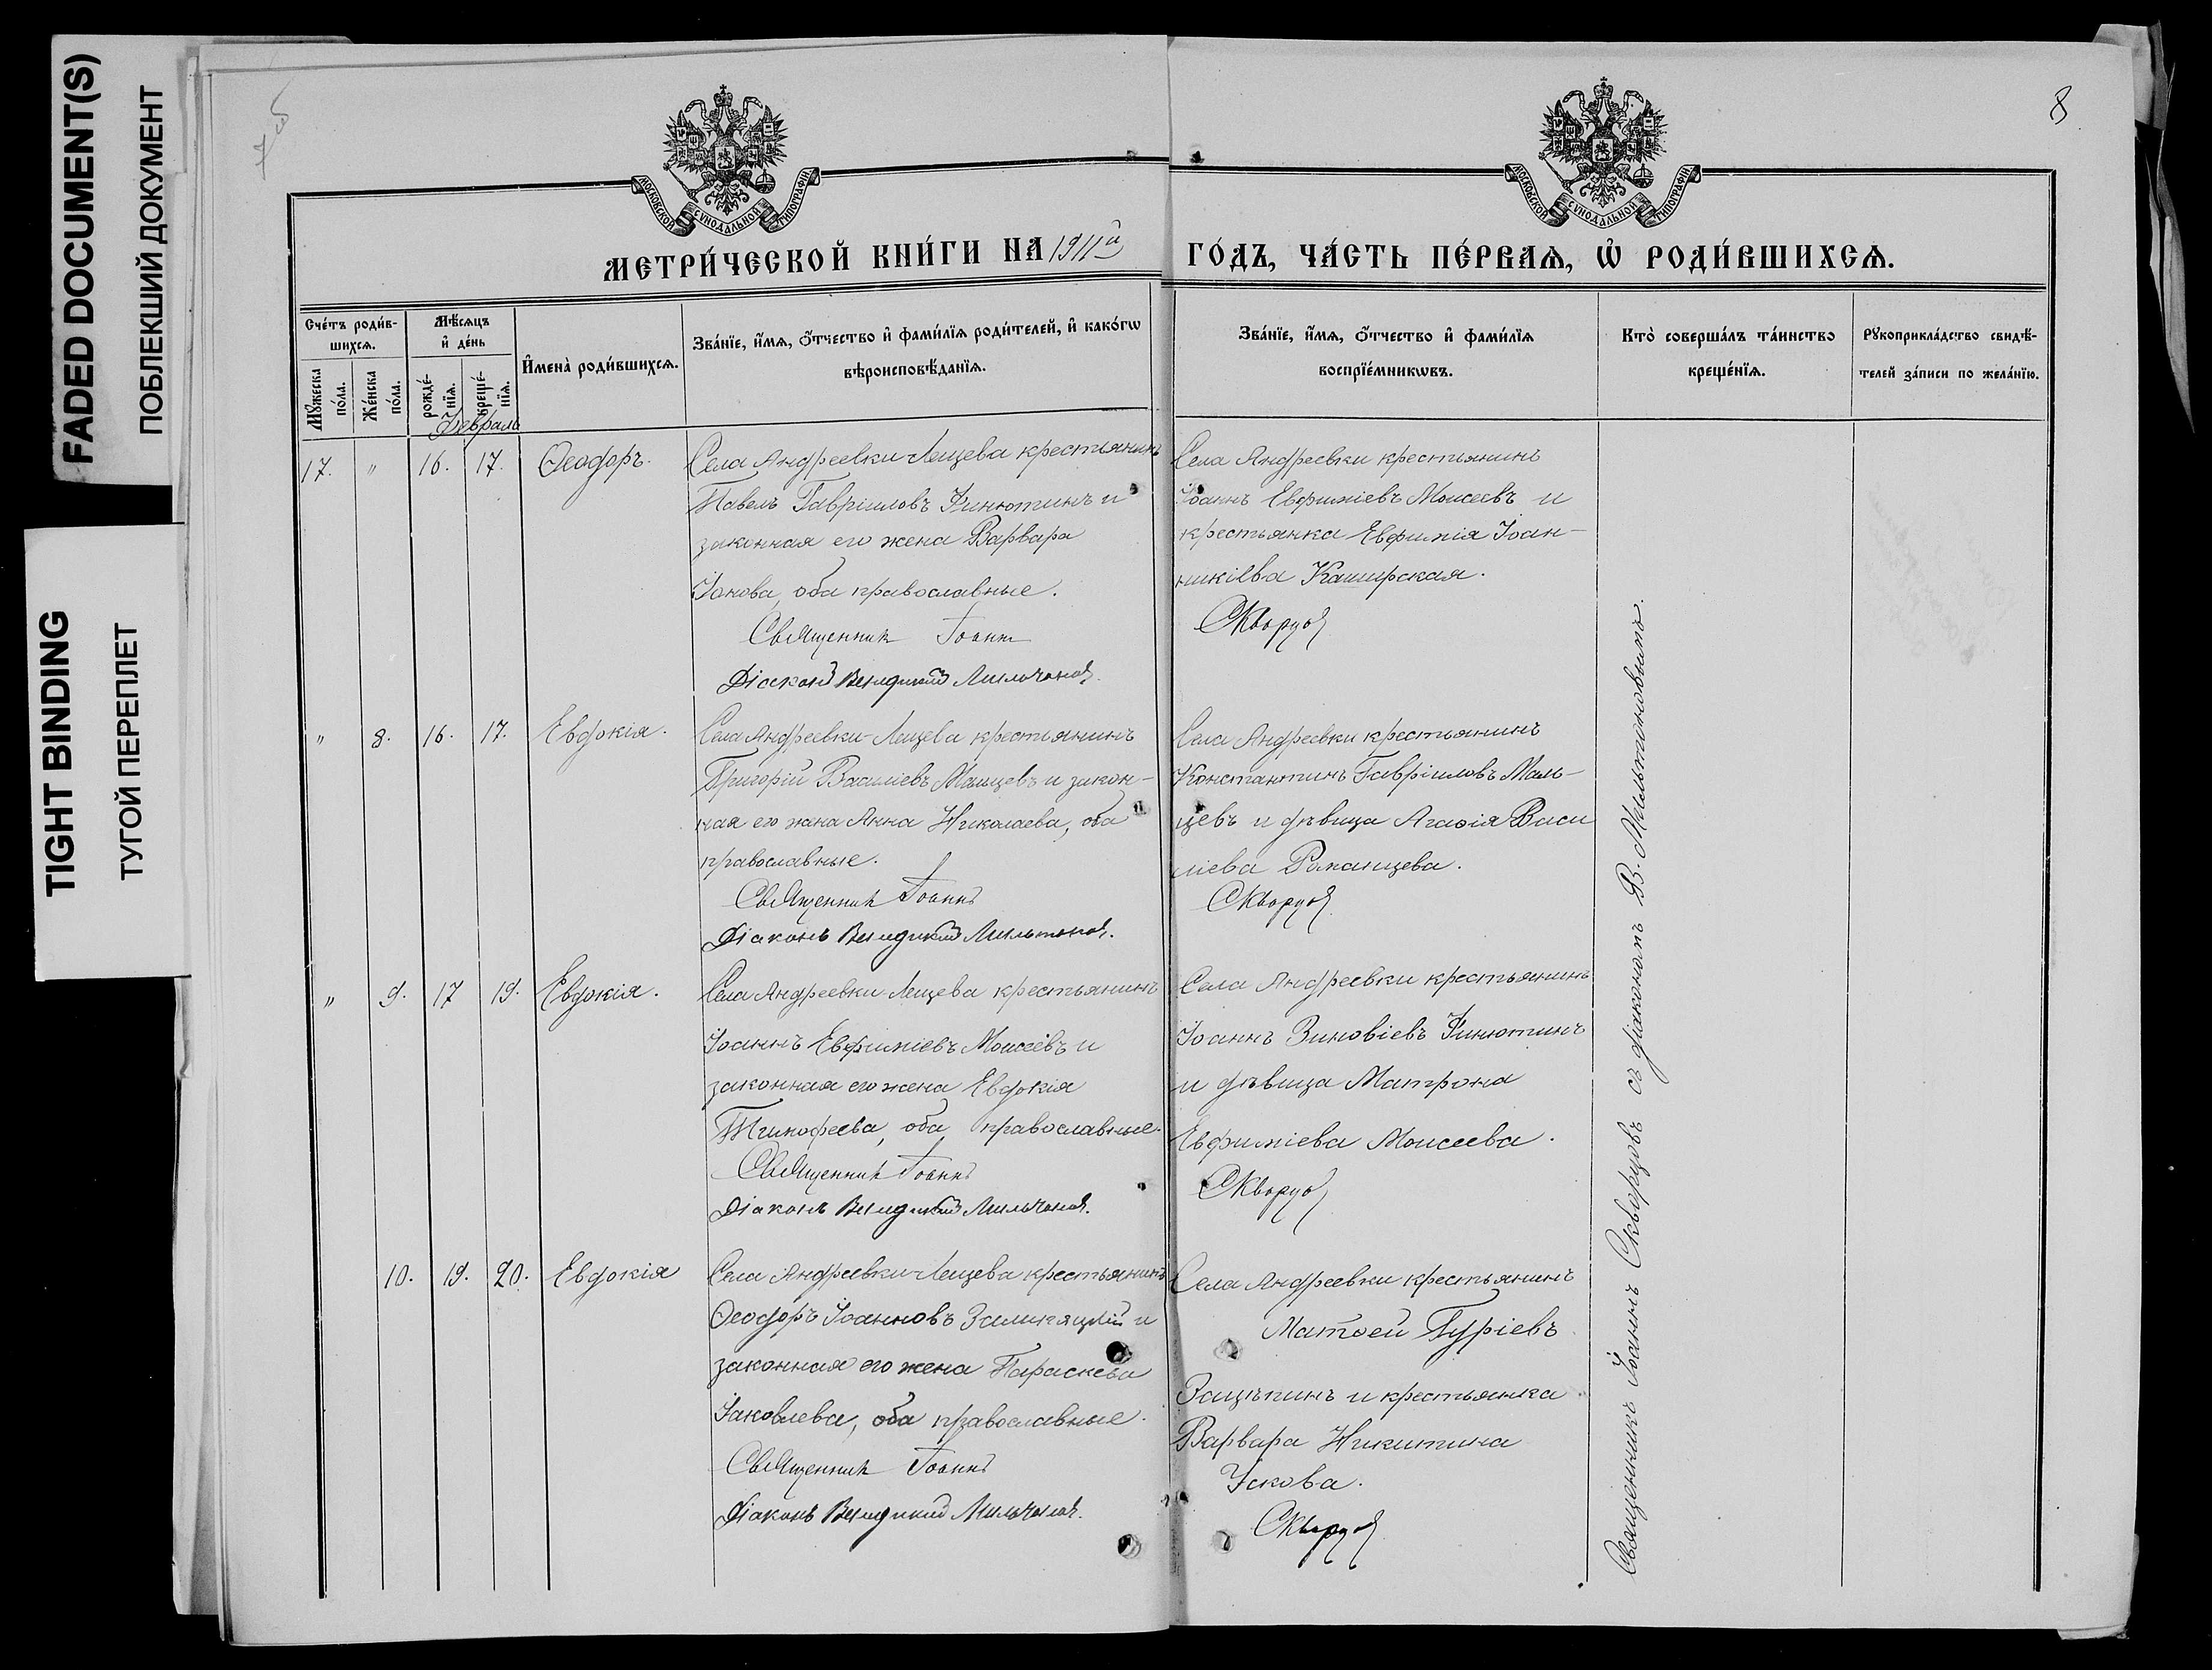 FADED DOCUMENT(S)
ПОБЛЕКШИЙ ДОКУМЕНТ
TIGHT BINDING
ТУГОЙ ПЕРЕПЛЕТ
8
МОСКОВСКОЙ СѴНОДАЛЬНОЙ ТИПОГРАФІИ
МОСКОВСКОЙ СѴНОДАЛЬНОЙ ТИПОГРАФІИ
МЕТРИ́ЧЕСКОЙ КНИ́ГИ НА 1911й ГО́ДЪ, ЧА́СТЬ ПЕ́РВАѦ, Ѡ҆ РОДИ́ВШИХСѦ.
Сче́тъ роди́в-
шихсѧ.
Мꙋ́жеска по́ла.
Же́нска по́ла.
Мѣ́сѧцъ
и҆ де́нь
рожде́-
нїѧ.
креще́-
нїѧ.
Февраль
И҆мена̀ роди́вшихсѧ.
Зва́нїе, и҆́мѧ, ѻ҆́тчество и҆ фами́лїѧ роди́телей, и҆ како́гѡ
вѣроисповѣ́данїѧ.
Зва́нїе, и҆́мѧ, ѻ҆́тчество и҆ фами́лїѧ
воспрїе́мникѡвъ.
Кто̀ соверша́лъ та́инство
креще́нїѧ.
Рꙋкоприкла́дство свидѣ́-
телей за́писи по жела́нїю.
17. " 16. 17. Ѳеодоръ.
Села Андреевки Лещева крестьянинъ
Павелъ Гавріиловъ Финютинъ и
законная его жена Варвара
Іонова, оба православные.
Священник Іоанн
Діакон Венедикт Мильтонов.
Села Андреевки крестьянинъ
Іоаннъ Евфиміевъ Моисеевъ и
крестьянка Евфимія Іоан-
никіева Каширская.
Скворцов
" 8. 16. 17. Евдокія.
Села Андреевки-Лещева крестьянинъ
Григорій Василіевъ Мальцевъ и закон-
ная его жена Анна Николаева, оба
православные.
Священник Іоаннъ
Діаконъ Венедикт Мильтонов.
Села Андреевки крестьянинъ
Константинъ Гавріиловъ Маль-
цевъ и дѣвица Агаѳія Васи
ліева Романцева.
Скворцов
" 9. 17 19. Евдокія.
Села Андреевки Лещева крестьянинъ
Іоаннъ Евфиміевъ Моисеевъ и
законная его жена Евдокія
Тимофеева, оба православные.
Священник Іоаннъ
Діаконъ Венедикт Мильтонов.
Села Андреевки крестьянинъ
Іоаннъ Зиновіевъ Финютинъ
и дѣвица Матрона
Евфиміева Моисеева.
Скворцов
10. 19. 20. Евдокія
Села Андреевки Лещева крестьянинъ
Ѳеодоръ Іоанновъ и
законная его жена Параскева
Іаковлева, оба православные.
Священник Іоаннъ
Діаконъ Венедикт Мильтонов.
Села Андреевки крестьянинъ
Матѳей Гуріевъ
Защѣпинъ и крестьянка
Варвара Никитина
Ускова.
Скворцов
Священникъ Іоаннъ Скворцовъ съ діакономъ В. Мильтоновымъ.